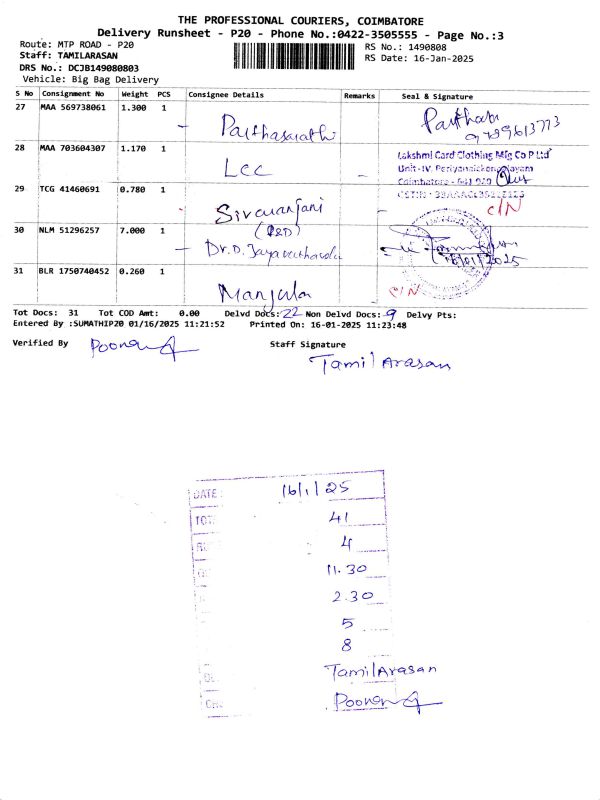 THE PROFESSIONAL COURIERS, COIMBATORE
Delivery Runsheet - P20 - Phone No.:0422-3505555 - Page No.:3
Route: MTP ROAD - P20
RS No.: 1490808
Staff: TAMILARASAN
RS Date: 16-Jan-2025
DRS No.: DCJB149080803
Vehicle: Big Bag Delivery
S No Consignment No Weight PCS Consignee Details Remarks Seal & Signature
27 MAA 569738061 1.300 1 - Parthasarathi
9789613773
28 MAA 703604307 1.170 1 LCC -
Lakshmi Card Clothing Mfg Co P Ltd
Unit-IV, Periyanaickenpalayam
Coimbatore - 641 020
29 TCG 41460691 0.780 1 Sivaranjani
C/N
30 NLM 51296257 7.000 1 (R&D)
- Dr.D.
16/01/2025
31 BLR 1750740452 0.260 1 Manjula
C/N
Tot Docs: 31 Tot COD Amt: 0.00 Delvd Docs: 22 Non Delvd Docs: 9 Delvy Pts:
Entered By :SUMATHIP20 01/16/2025 11:21:52 Printed On: 16-01-2025 11:23:48
Verified By Poonam
Staff Signature
TamilArasan
DATE : 16/1/25
TOT. 41
4
11.30
2.30
5
8
TamilArasan
Poonam